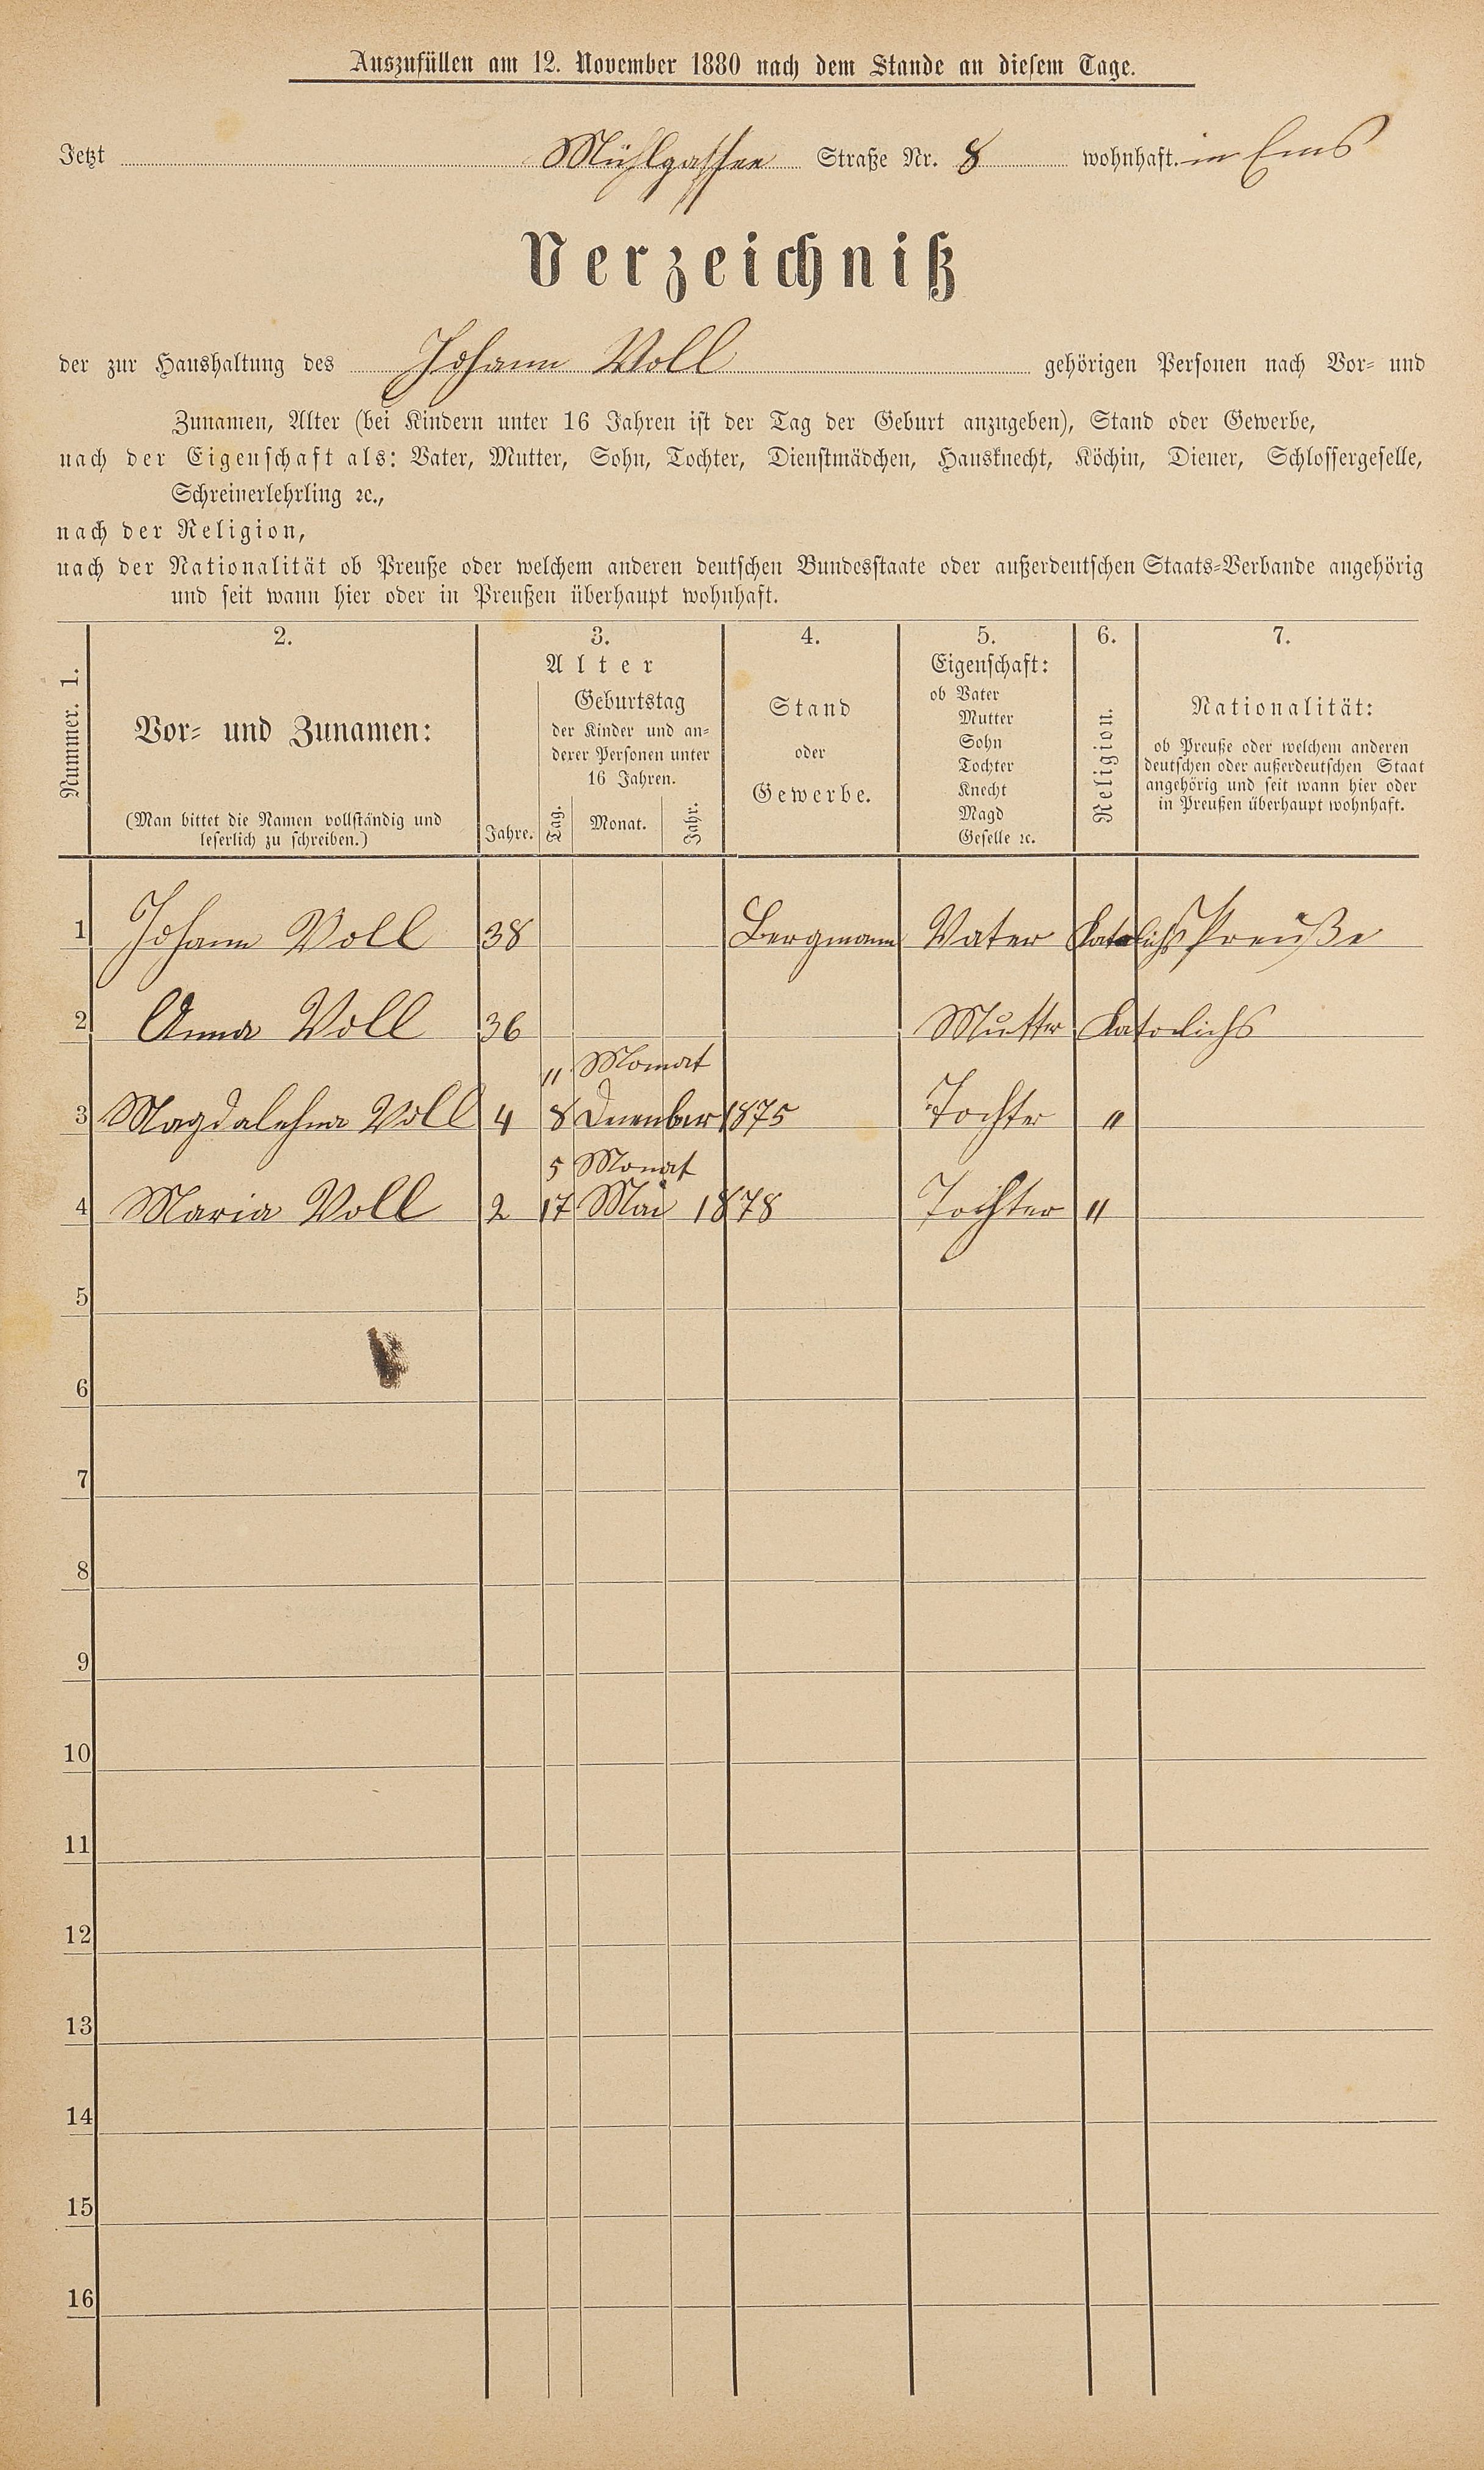 Auszufüllen am 12. November 1880 nach dem Stande an diesem Tage.
Jetzt Mühlgassee Straße Nr. 8 wohnhaft. in Ems
Verzeichniß
der zur Haushaltung des Johann Voll gehörigen Personen nach Vor- und
Zunamen, Alter (bei Kindern unter 16 Jahren ist der Tag der Geburt anzugeben), Stand oder Gewerbe,
nach der Eigenschaft als: Vater, Mutter, Sohn, Tochter, Dienstmädchen, Hausknecht, Köchin, Diener, Schlossergeselle,
Schreinerlehrling ꝛc.,
nach der Religion,
nach der Nationalität ob Preuße oder welchem anderen deutschen Bundesstaate oder außerdeutschen Staats-Verbande angehörig
und seit wann hier oder in Preußen überhaupt wohnhaft.
Nummer. 1.
2.
Vor- und Zunamen:
(Man bittet die Namen vollständig und
leserlich zu schreiben.)
3.
Alter
Jahre.
Geburtstag
der Kinder und an-
derer Personen unter
16 Jahren.
Tag. Monat. Jahr.
4.
Stand
oder
Gewerbe.
5.
Eigenschaft:
ob Vater
Mutter
Sohn
Tochter
Knecht
Magd
Geselle ꝛc.
6.
Religion.
7.
Nationalität:
ob Preuße oder welchem anderen
deutschen oder außerdeutschen Staat
angehörig und seit wann hier oder
in Preußen überhaupt wohnhaft.
1 Johann Voll 38 Bergmann Vater Katolichs Preuße
2 Anna Voll 36 Mutter Katolichs
11 Momat
3 Magdalehna Voll 4 8 1875 Tochter "
5 Monat
4 Maria Voll 2 17 Mai 1878 Tochter "
5
6
7
8
9
10
11
12
13
14
15
16